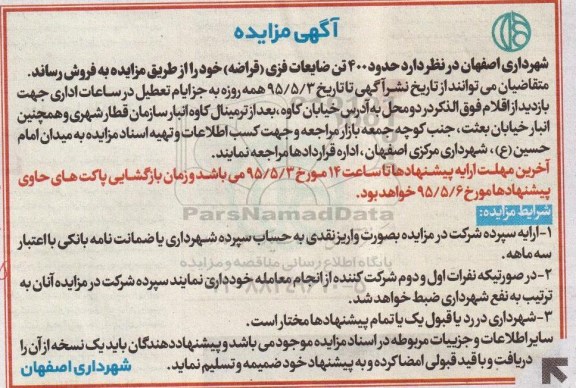 آگهی مزایده
شهرداری اصفهان در نظر دارد حدود ۴۰۰ تن ضایعات فزی (قراضه) خود را از طریق مزایده به فروش رساند.
متقاضیان می توانند از تاریخ نشر آگهی تا تاریخ ۹۵/۵/۲ همه روزه به جز ایام تعطیل در ساعات اداری جهت
بازدید از اقلام فوق الذکر در دو محل به آدرس خیابان کاوه، بعد از ترمینال کاوه انبار سازمان قطار شهری و همچنین
انبار خیابان بعثت ، جنب کوچه جمعه بازار مراجعه و جهت کسب اطلاعات و تهیه اسناد مزایده به میدان امام
حسین (ع) ، شهرداری مرکزی اصفهان ، اداره قراردادها مراجعه نمایند.
آخرین مهلت ارایه پیشنهادها تا ساعت ۱۴ مورخ ۹۵/۵/۳ می باشد و زمان بازگشایی پاکت های حاوی
پیشنهادها مورخ ۹۵/۵/۶ خواهد بود.
ParsNamadData
شرایط مزایده:
پایگاه اطلاع رسانی مناقصه و مزایده
۱-ارایه سپرده شرکت در مزایده بصورت واریز نقدی به حساب سپرده شهرداری یا ضمانت نامه بانکی با اعتبار
سه ماهه.
۲-در صورتیکه نفرات اول و دوم شرکت کننده از انجام معامله خودداری نمایند سپرده شرکت در مزایده آنان به
ترتیب به نفع شهرداری ضبط خواهد شد.
۳-شهرداری در رد یا قبول یک یا تمام پیشنهادها مختار است.
سایر اطلاعات و جزییات مربوطه در اسناد مزایده موجود می باشد و پیشنهاد دهندگان باید یک نسخه از آن را
دریافت و با قید قبولی امضا کرده و به پیشنهاد خود ضمیمه و تسلیم نماید.
شهرداری اصفهان